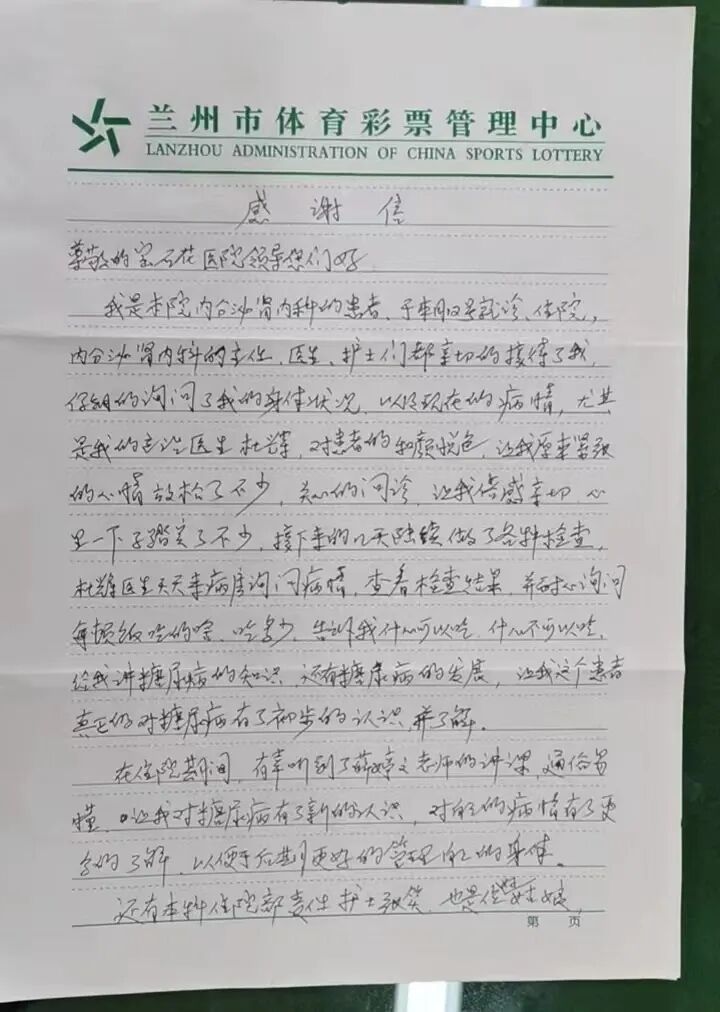 兰州市体育彩票管理中心
LANZHOU ADMINISTRATION OF CHINA SPORTS LOTTERY
感谢信
尊敬的宝石花医院领导您们好
我是本院内分泌肾内科的患者、于 就诊、住院,
内分泌肾内科的主任、医生、护士们都亲切的接待了我,
仔细的询问了我的身体状况、以及现在的病情,尤其
是我的主治医生杜 ,对患者的和颜悦色,让我原来紧张
的心情放松了不少,关心的问诊,让我倍感亲切,心
里一下子踏实了不少,接下来的几天陆续做了各种检查,
杜 医生天天来病房询问病情,查看检查结果,并耐心询问
每顿饭吃的啥、吃多少,告诉我什么可以吃,什么不可以吃,
给我讲糖尿病的知识,还有糖尿病的发展,让我这个患者
真正的对糖尿病有了初步的认识,并了解。
在住院期间,有幸听到了薛婷文老师的讲课,通俗易
懂,让我对糖尿病有了新的认识,对自己的病情有了更
多的了解,以便于后期更好的管理自己的身体。
还有本科住院部责任护士张笑,也是位 姑娘,
第 页